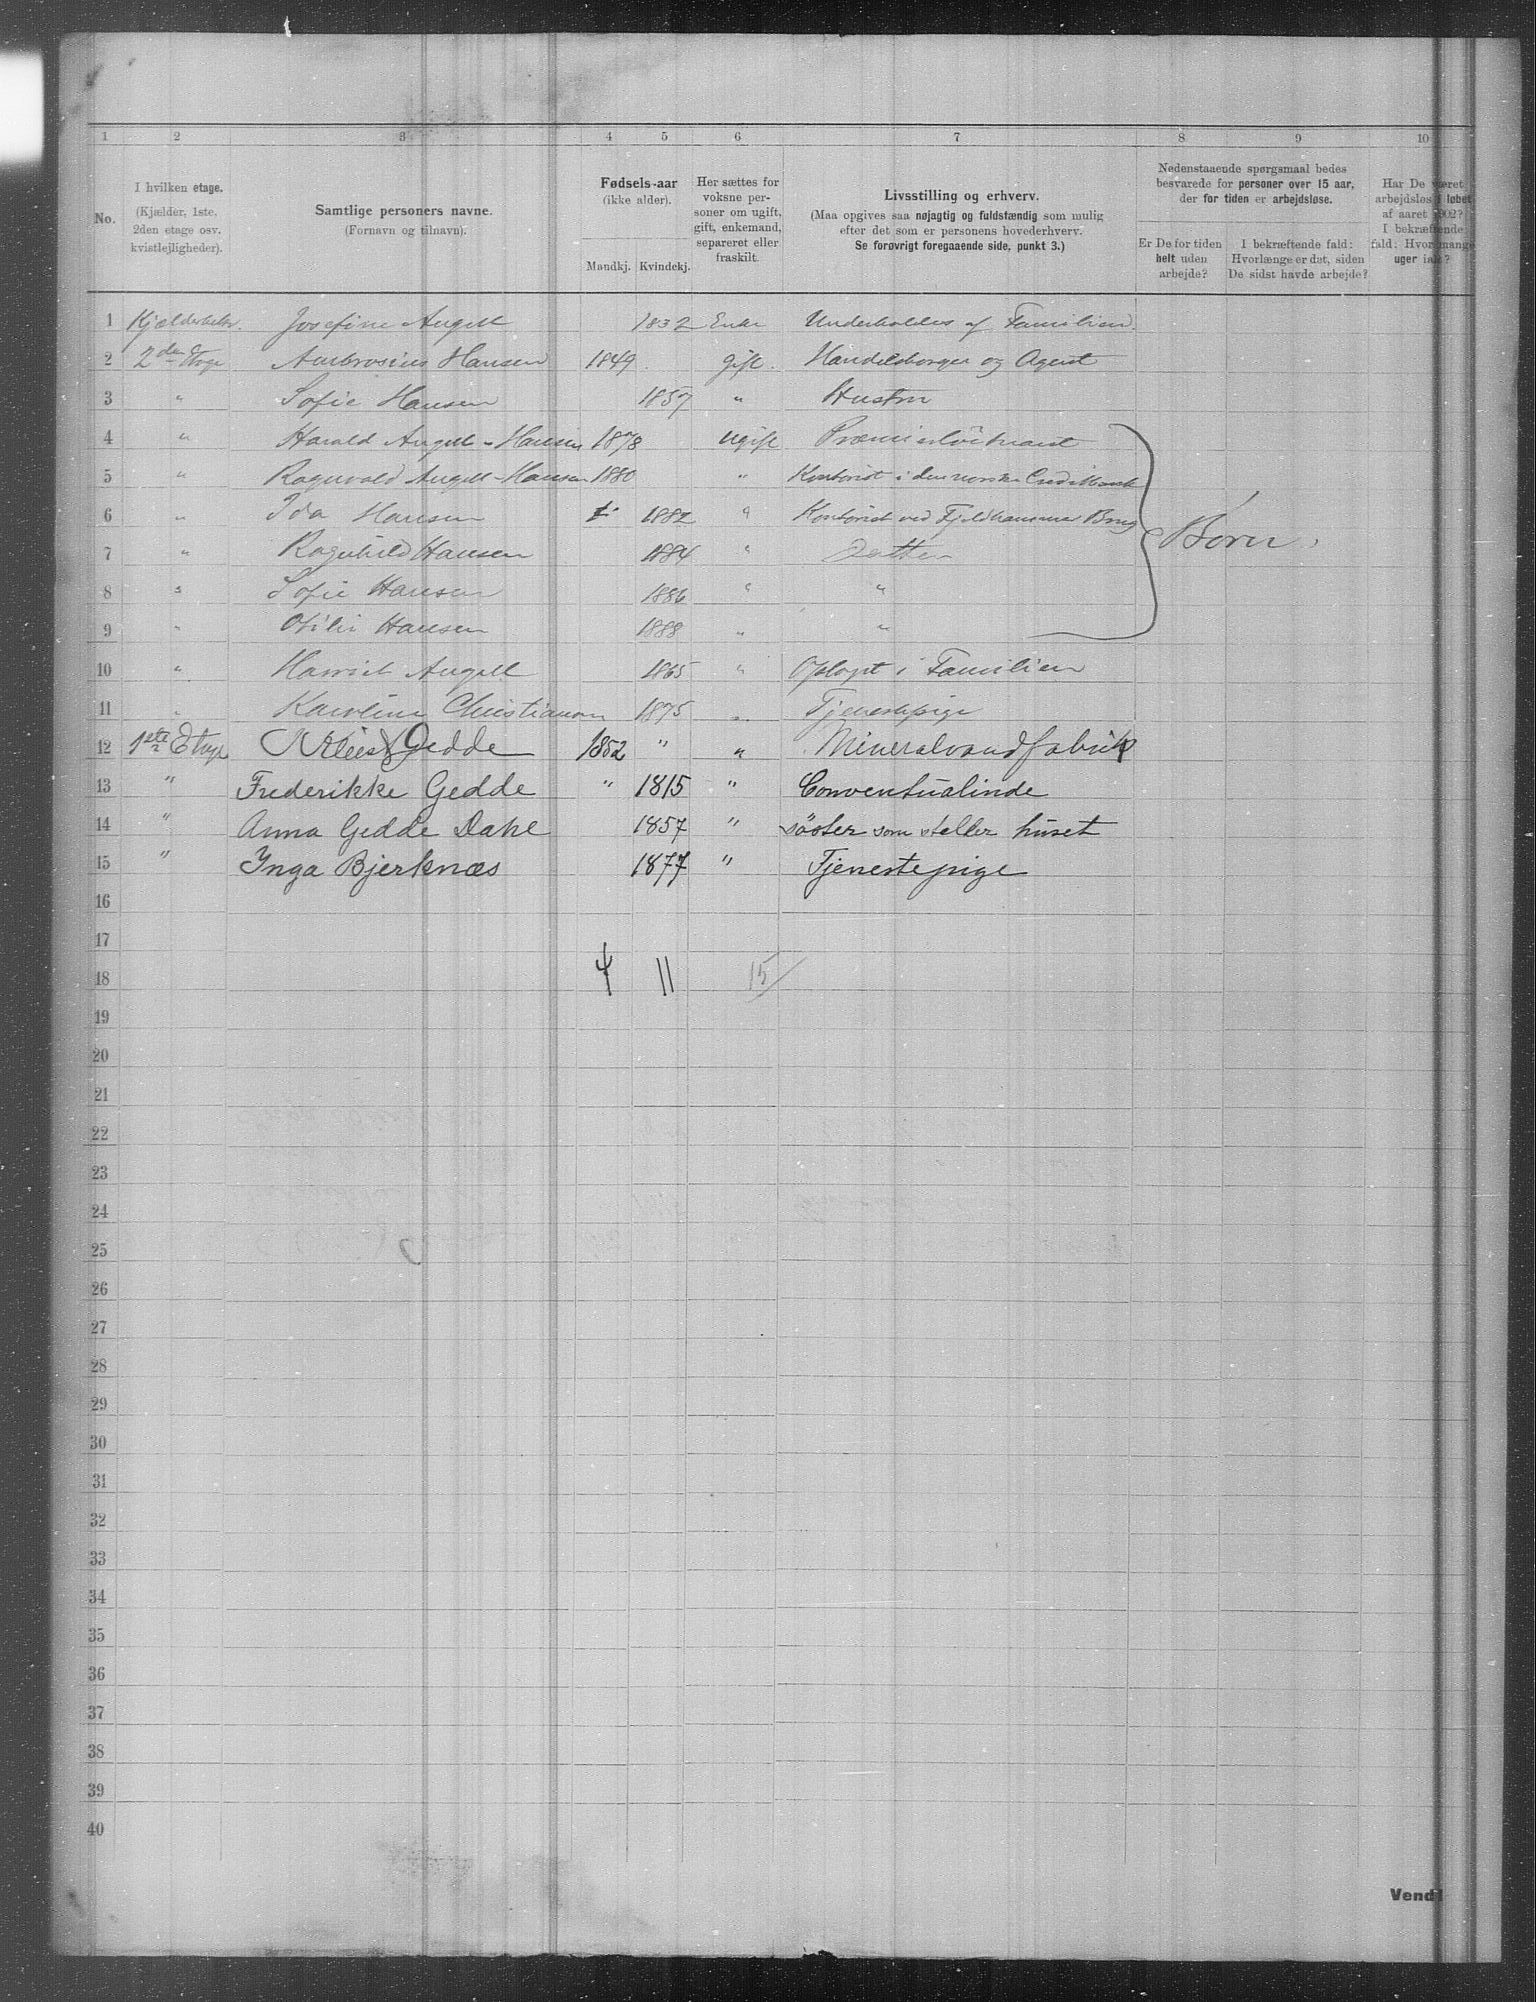 1 2 3 4 5 6 7 8 9 10
No.
I hvilken etage.
(Kjælder, 1ste, 2den etage osv. kvistlejligheder).
Samtlige personers navne.
(Fornavn og tilnavn).
Fødsels-aar
(ikke alder).
Mandkj. Kvindekj.
Her sættes for voksne personer om ugift, gift, enkemand, separeret eller fraskilt.
Livsstilling og erhverv.
(Maa opgives saa nøjagtig og fuldstændig som mulig efter det som er personens hovederhverv.
Se forøvrigt foregaaende side, punkt 3.)
Nedenstaaende spørgsmaal bedes besvarede for personer over 15 aar, der for tiden er arbejdsløse.
Er De for tiden helt uden arbejde?
I bekræftende fald: Hvorlænge er det, siden De sidst havde arbejde?
Har De været arbejdsløs i løbet af aaret 1902? I bekræftende fald: Hvor mange uger ialt?
1 Josefine Angell 1832 Enke Underholdes af Familien.
2 2den Etage Ambrosius Hansen 1849 gift. Handelsborger og Agent
3 " Sofie Hansen 1857 " Hustru
4 " Harald Angell-Hansen 1878 Ugift Premierløitnant
5 " Ragnvald Angell-Hansen 1880 " Kontorist i den norske Creditbank
6 " Ida Hansen 1882 " Kontorist ved Fjeldhammer Brug
7 " Ragnhild Hansen 1884 " Datter
8 " Sofie Hansen 1886 " "
9 " Otilie Hansen 1888 " "
Børn.
10 " Harriet Angell 1865 " Optaget i Familien
11 " Karoline Christiansen 1875 " Tjenestepige
12 1ste Etage Gedde 1852 " " Mineralvandfabrik
13 " Frederikke Gedde " 1815 " Conventualinde
14 " Anna Gedde Dahl 1857 " søster som steller huset
15 " Inga Bjerknæs 1877 " Tjenestepige
16
17
18 4 11 15
19
20
21
22
23
24
25
26
27
28
29
30
31
32
33
34
35
36
37
38
39
40
Vend!